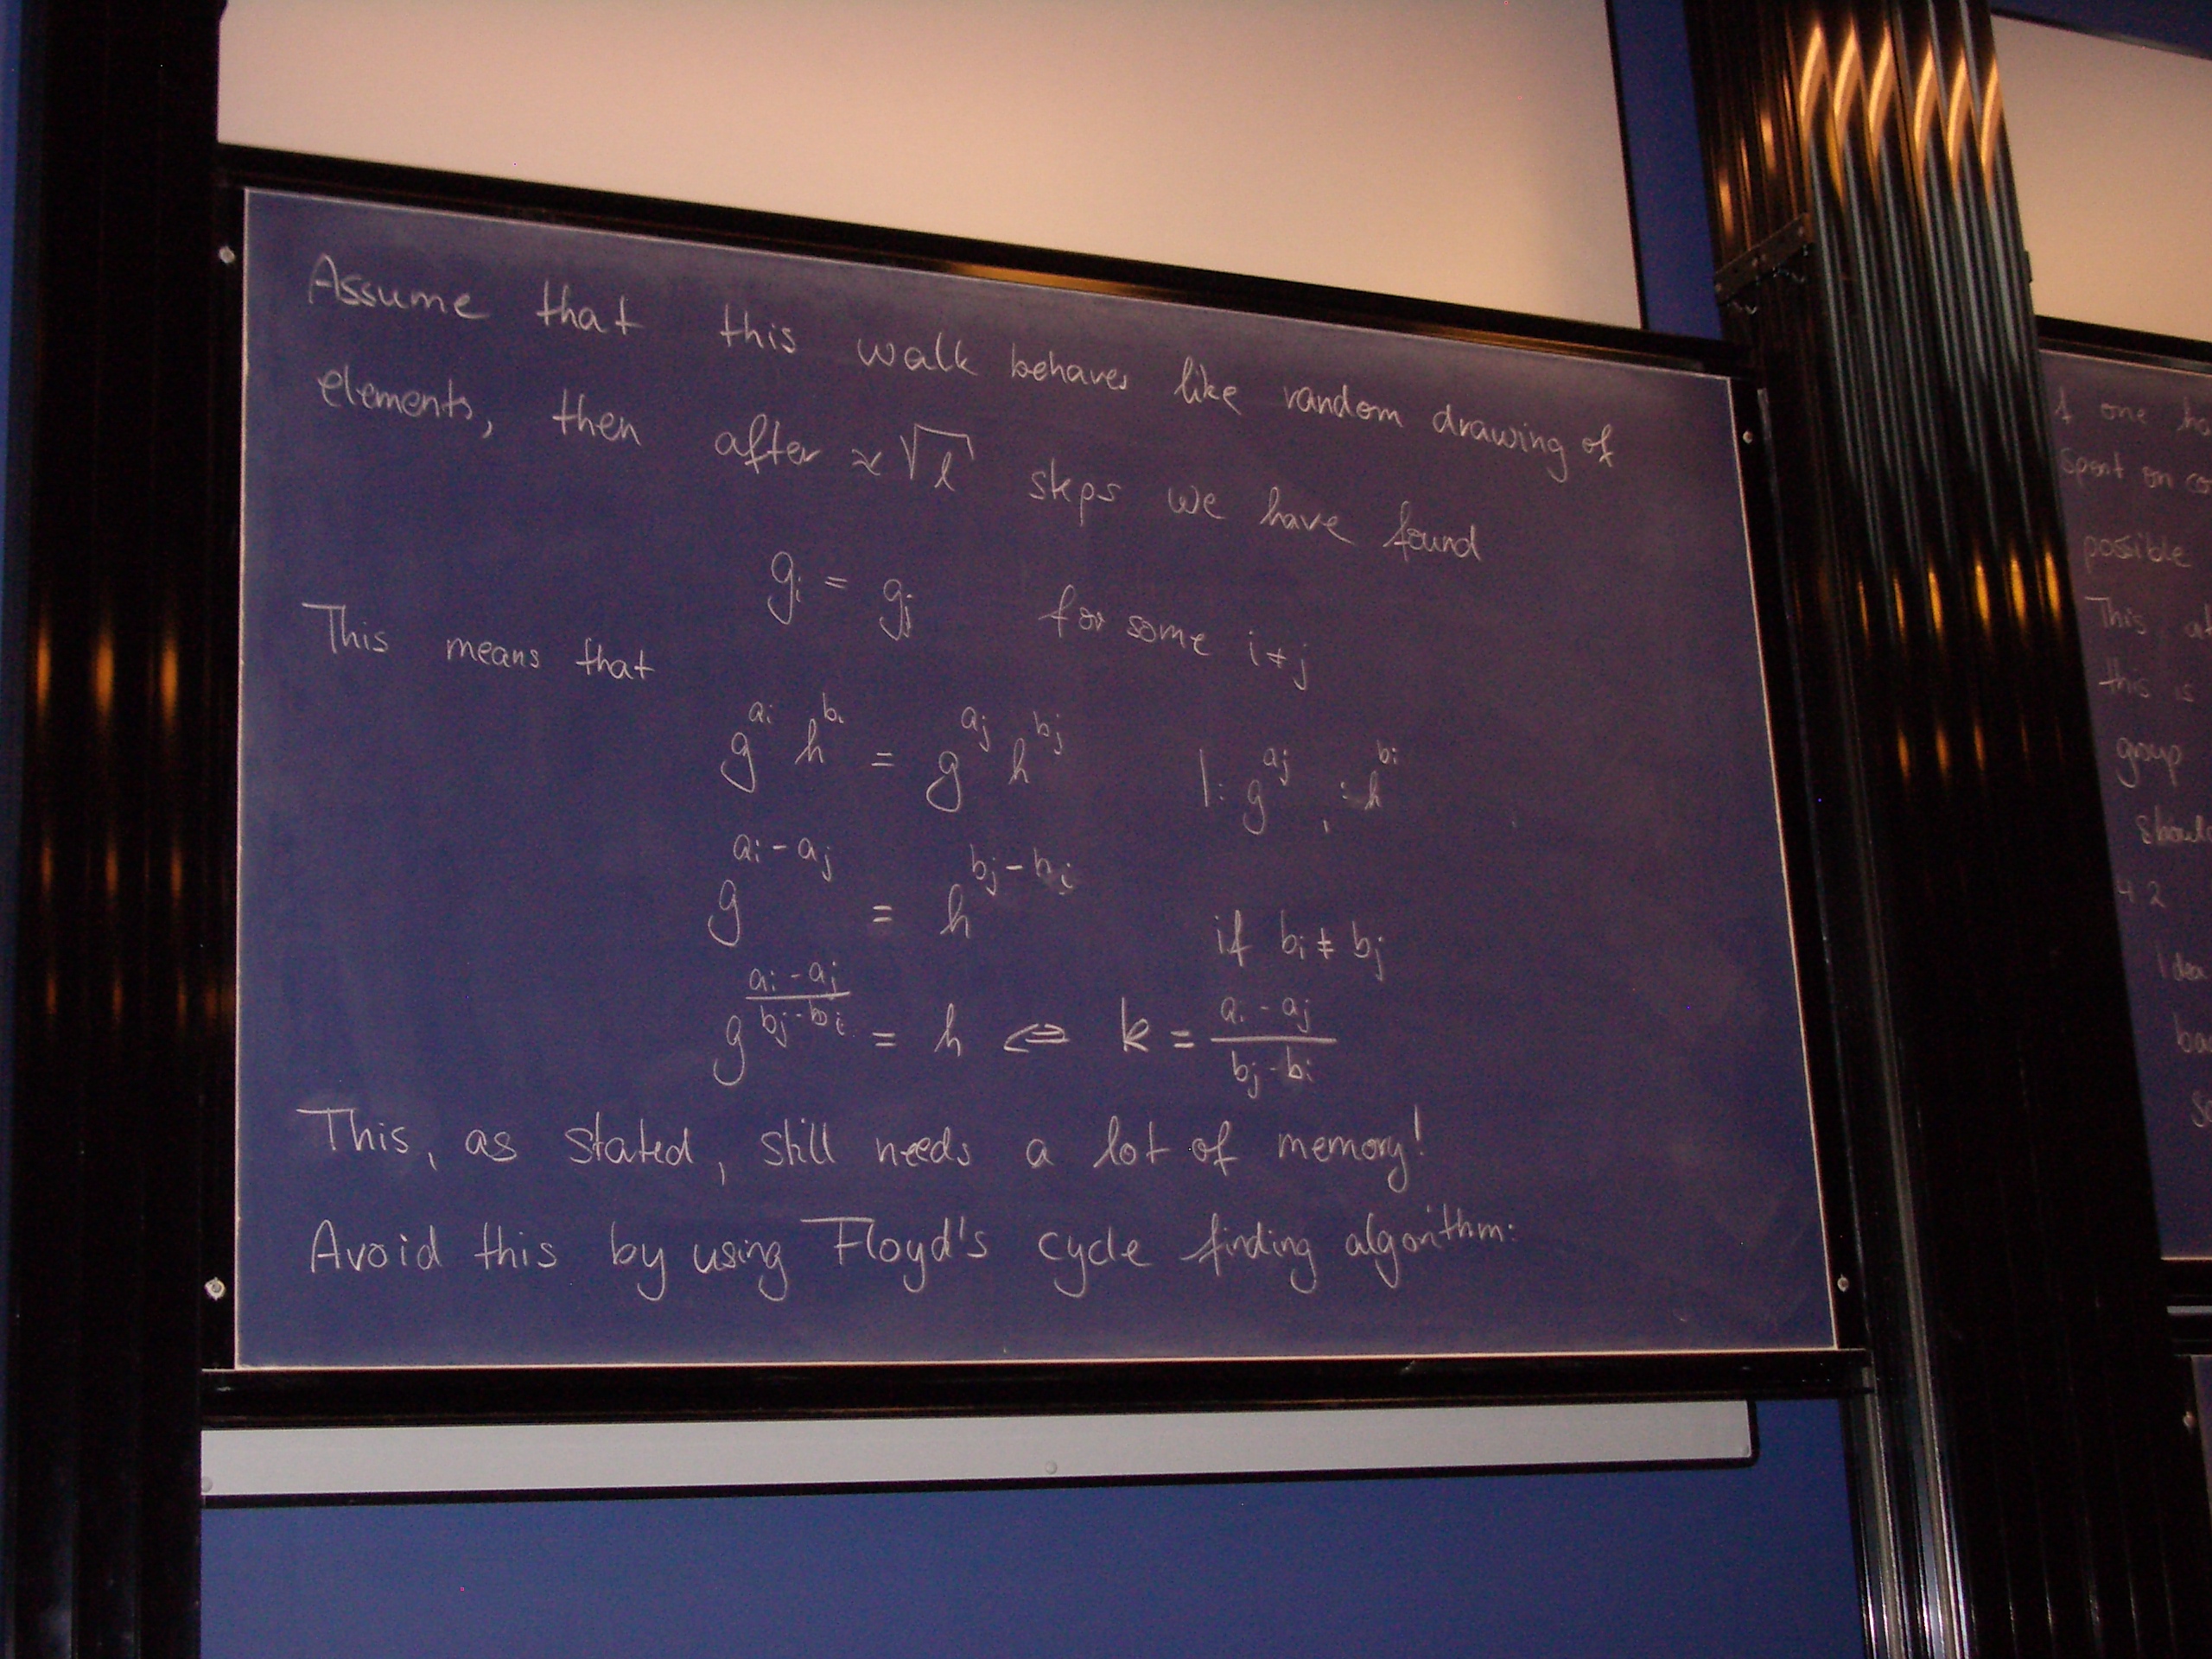 Assume that this walk behaves like random drawing of
elements, then after ≈ √l steps we have found
g_i = g_j for some i ≠ j
This means that
g^{a_i} h^{b_i} = g^{a_j} h^{b_j} |: g^{a_j}, :h^{b_i}
g^{a_i - a_j} = h^{b_j - b_i} if b_i ≠ b_j
g^{\frac{a_i - a_j}{b_j - b_i}} = h ⇔ k = \frac{a_i - a_j}{b_j - b_i}
This, as stated, still needs a lot of memory!
Avoid this by using Floyd's cycle finding algorithm:
one
Spent on
possible
This
this is
group
4.2
Idea